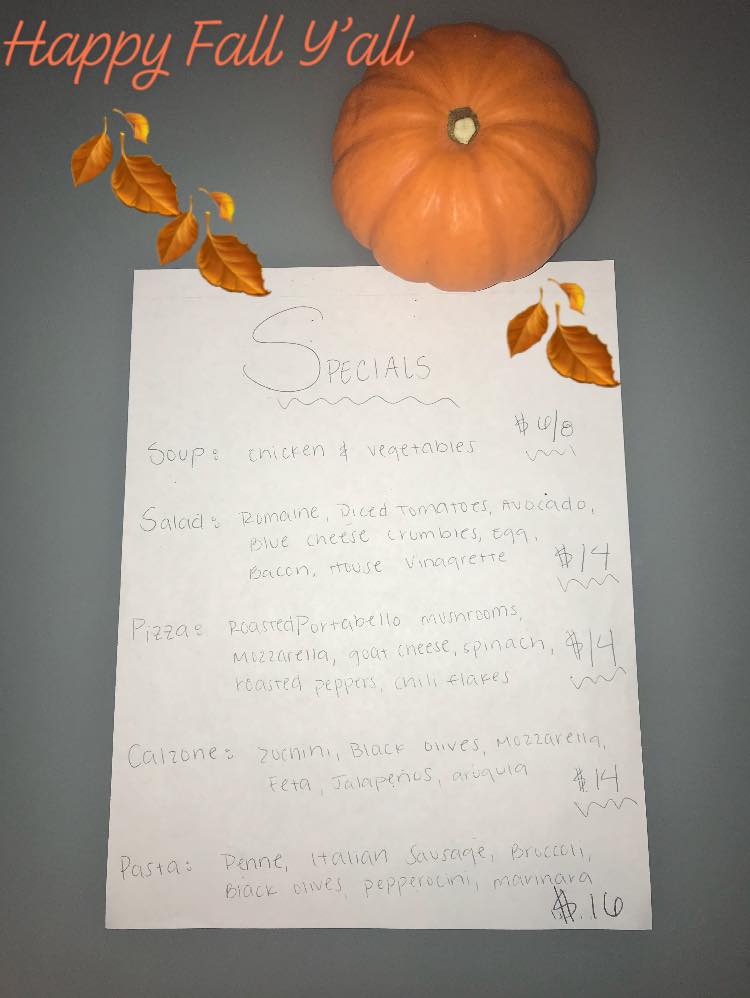 Happy Fall Y'all
SPECIALS
Soup: chicken & vegetables $6/8
Salad: Romaine, Diced Tomatoes, Avocado,
Blue cheese crumbles, Egg,
Bacon, House vinagrette $14
Pizza: Roasted Portabello mushrooms,
Mozzarella, goat cheese, spinach, $14
roasted peppers, chili flakes
Calzone: zuchini, Black olives, Mozzarella,
Feta, Jalapeños, arugula
$14
Pasta: Penne, Italian Sausage, Broccoli,
Black olives, pepperocini, marinara
$.16